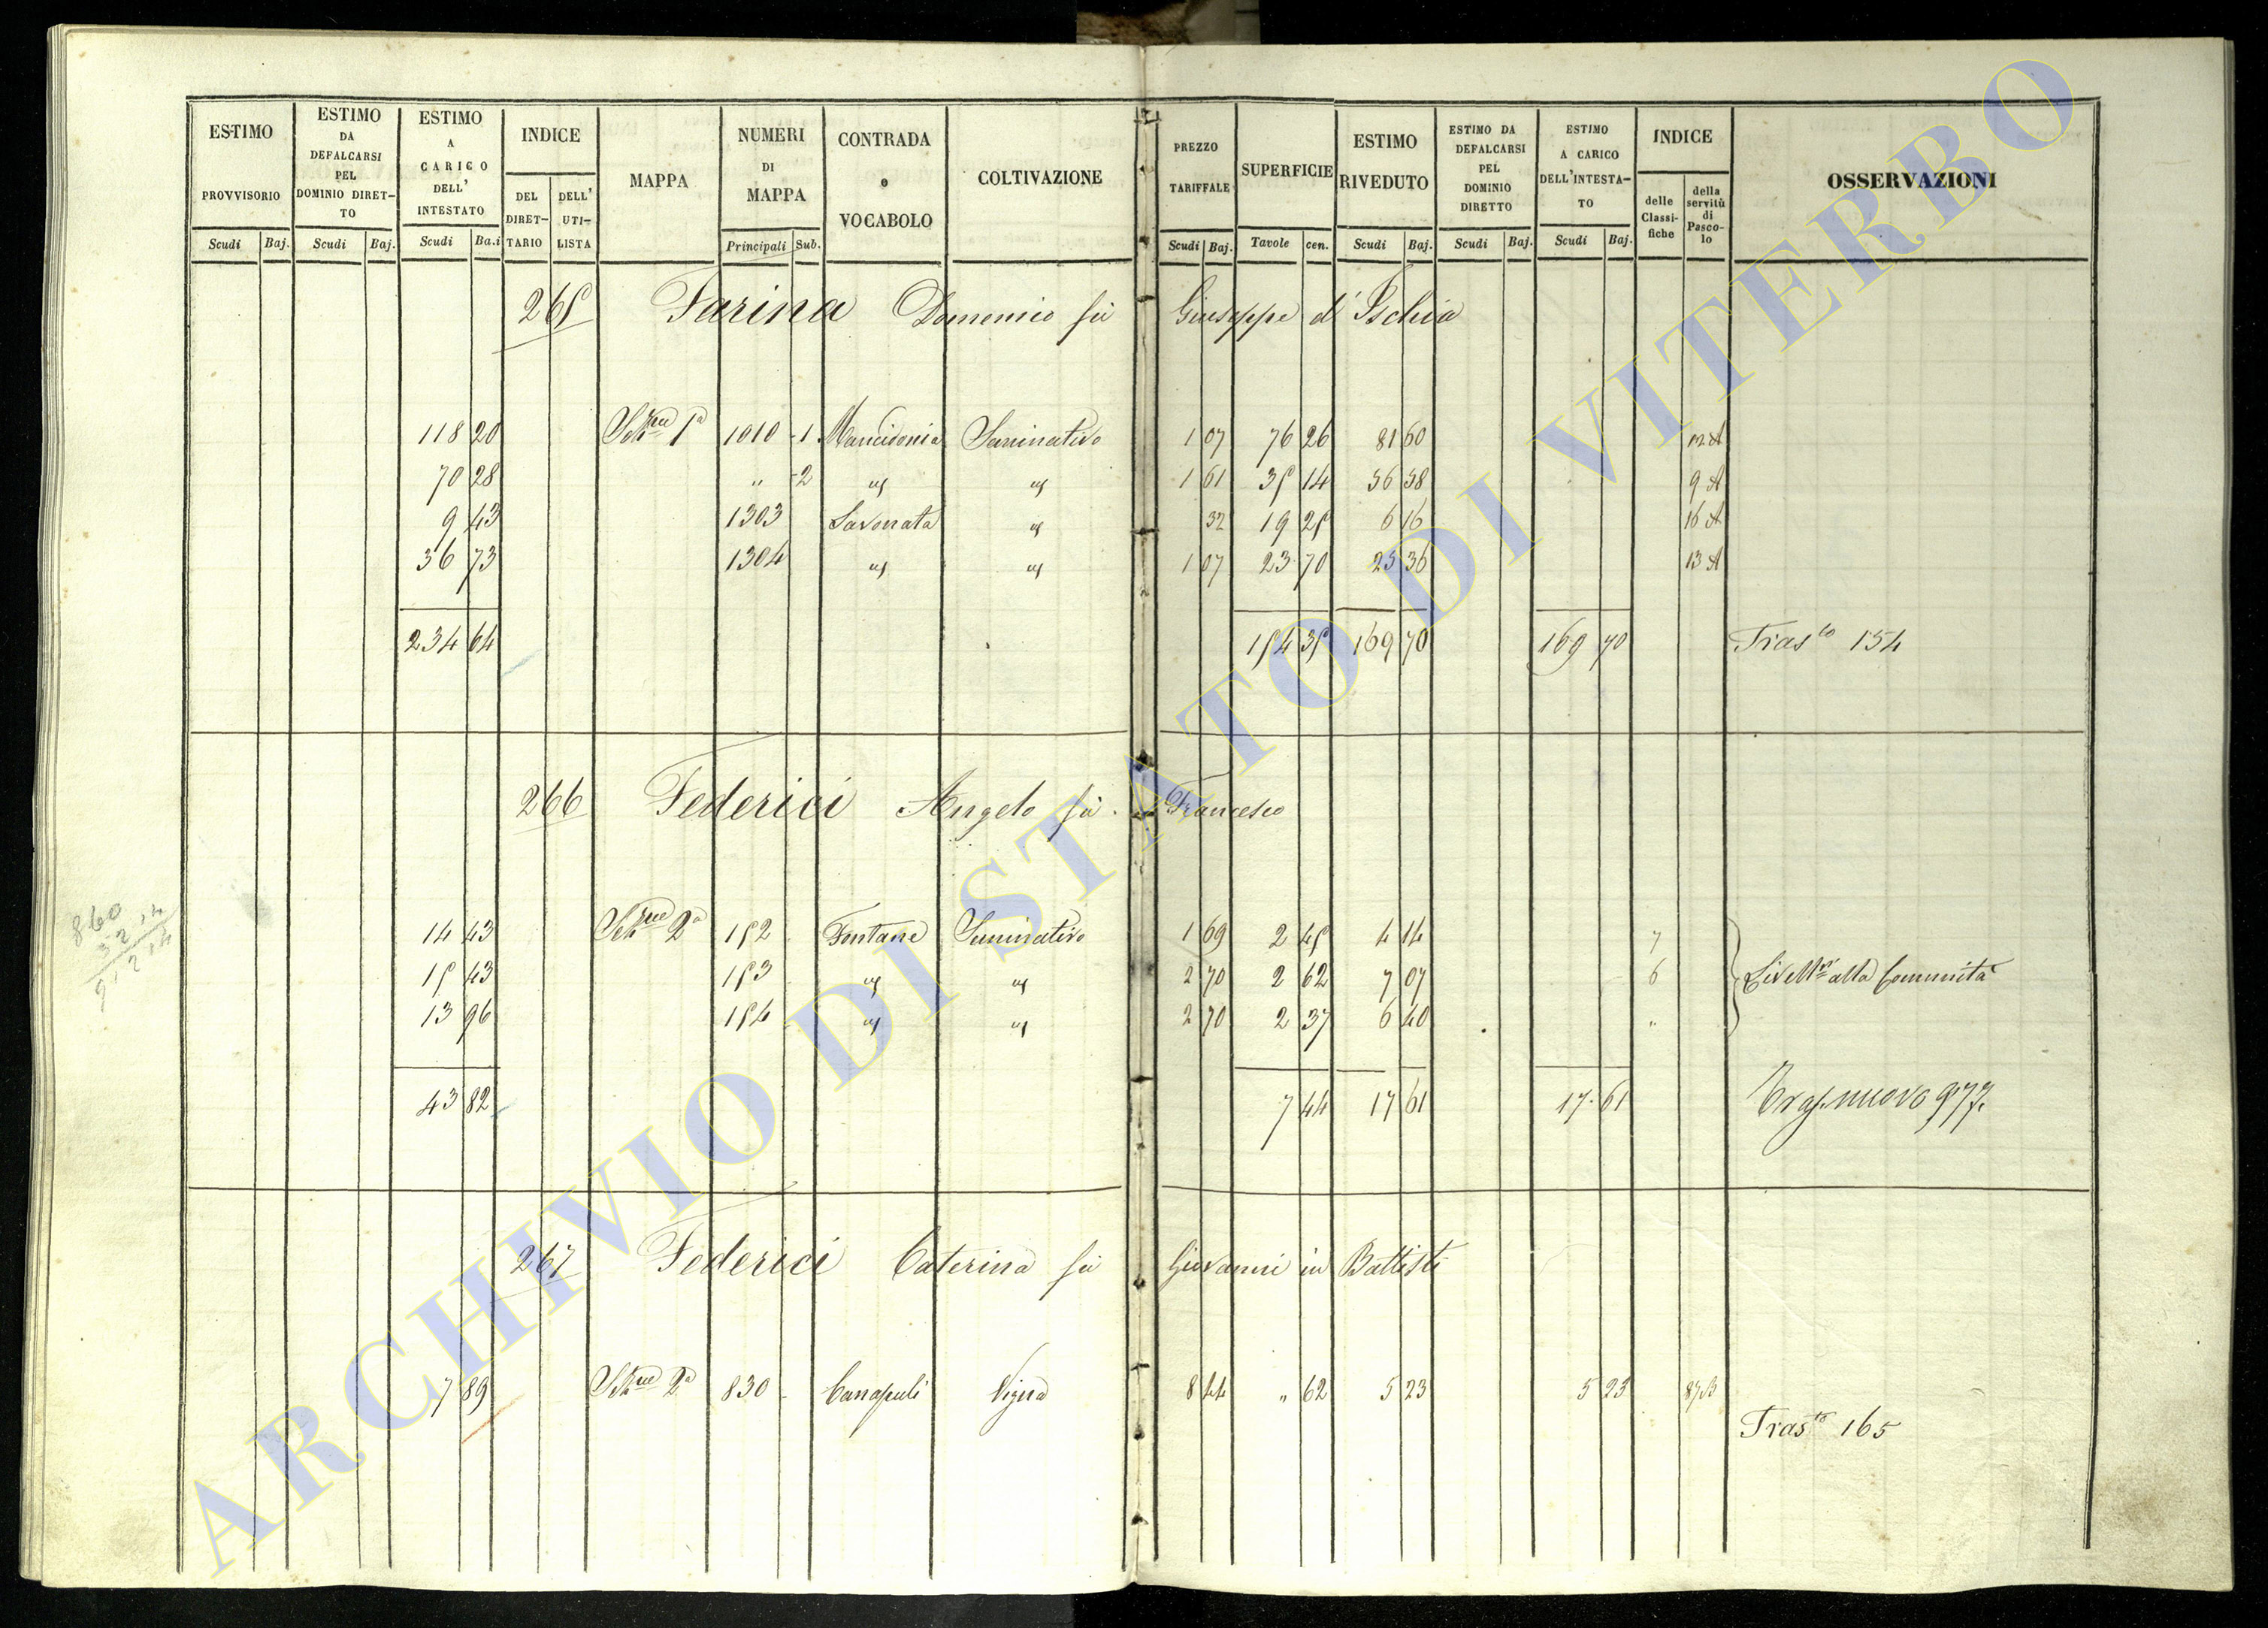 ESTIMO PROVVISORIO Scudi Baj.
ESTIMO DA DEFALCARSI PEL DOMINIO DIRETTO Scudi Baj.
ESTIMO A CARICO DELL' INTESTATO Scudi Ba.i
INDICE DEL DIRETTARIO DELL' UTILISTA
MAPPA
NUMERI DI MAPPA Principali Sub.
CONTRADA o VOCABOLO
COLTIVAZIONE
PREZZO TARIFFALE Scudi Baj.
SUPERFICIE Tavole cen.
ESTIMO RIVEDUTO Scudi Baj.
ESTIMO DA DEFALCARSI PEL DOMINIO DIRETTO Scudi Baj.
ESTIMO A CARICO DELL'INTESTATO Scudi Baj.
INDICE delle Classifiche della servitù di Pascolo
OSSERVAZIONI
265 Farina Domenico fù Giuseppe d'Ischia
118 20 Sez.ne 1a 1010 -1 Mancidonia Seminativo 1 07 76 26 81 60 12 A
70 28 " -2 " " 1 61 35 14 56 58 9 A
9 43 1303 Lavonata " 32 19 25 6 16 16 A
36 73 1304 " " 1 07 23 70 25 36 13 A
234 64 154 35 169 70 169 70 Tras.to 154
266 Federici Angelo fù Francesco
860
32 14
14 43 Sez.ne 2a 152 Fontane Seminativo 1 69 2 45 4 14 7
15 43 153 " " 2 70 2 62 7 07 6 Livell.ri alla Communità
13 96 154 " " 2 70 2 37 6 40 "
43 82 7 44 17 61 17 61 Trasp. nuovo 977.
267 Federici Caterina fù Giovanni in Battisti
7 89 Sez.ne 2a 830 Canapuli Vigna 8 44 " 62 5 23 5 23 87 B
Tras.to 165
ARCHIVIO DI STATO DI VITERBO